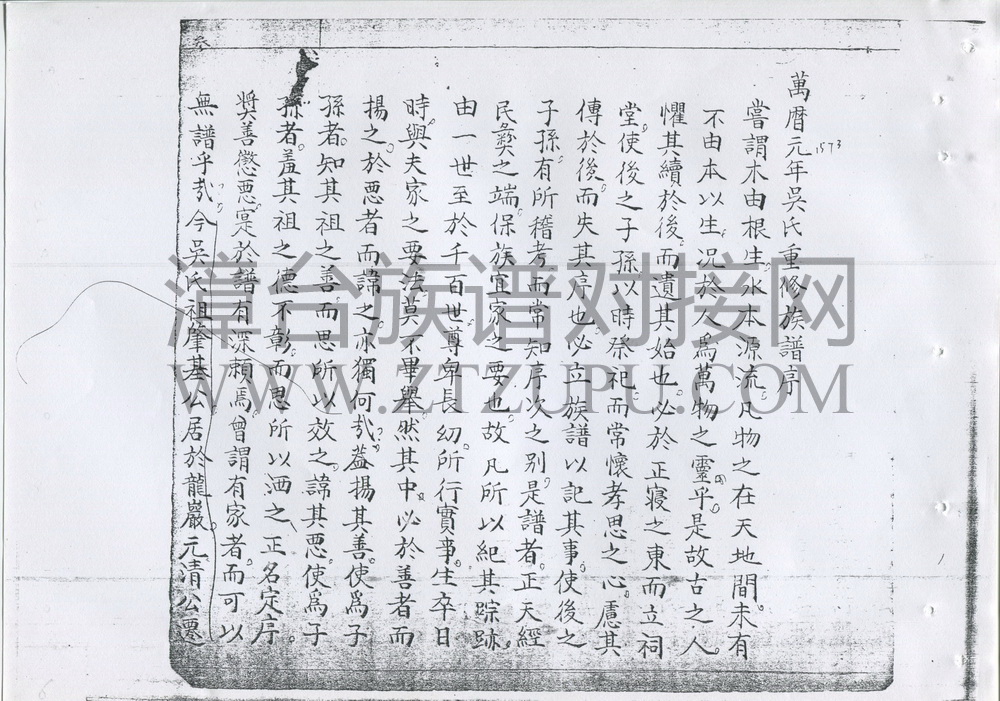 萬曆元年吳氏重修族譜序
1573
嘗謂木由根生。水本源流。凡物之在天地間。未有
不由本以生。况於人爲萬物之靈乎。是故古之人。
懼其續於後。而遺其始也。必於正寢之東而立祠
堂。使後之子孫以時祭祀。而常懷孝思之心。慮其
傳於後。而失其序也。必立族譜以記其事。使後之
子孫有所稽考。而常知序次之别。是譜者。正天經
民彝之端。保族宜家之要也。故凡所以紀其踪跡。
由一世至於千百世。尊卑長幼。所行實事。生卒日
時。與夫家之要法。莫不畢舉。然其中。必於善者而
揚之。於悪者而諱之。亦獨何㢤。葢揚其善。使爲子
孫者。知其祖之善。而思所以效之。諱其悪。使爲子
孫者。羞其祖之德不彰。而思所以洒之。正名定序。
奨善懲悪。寔於譜有深賴焉。曾謂有家者。而可以
無譜乎㢤。今吳氏祖肇基公居於龍巖。元清公遷
漳台族谱对接网
WWW.ZTZUPU.COM